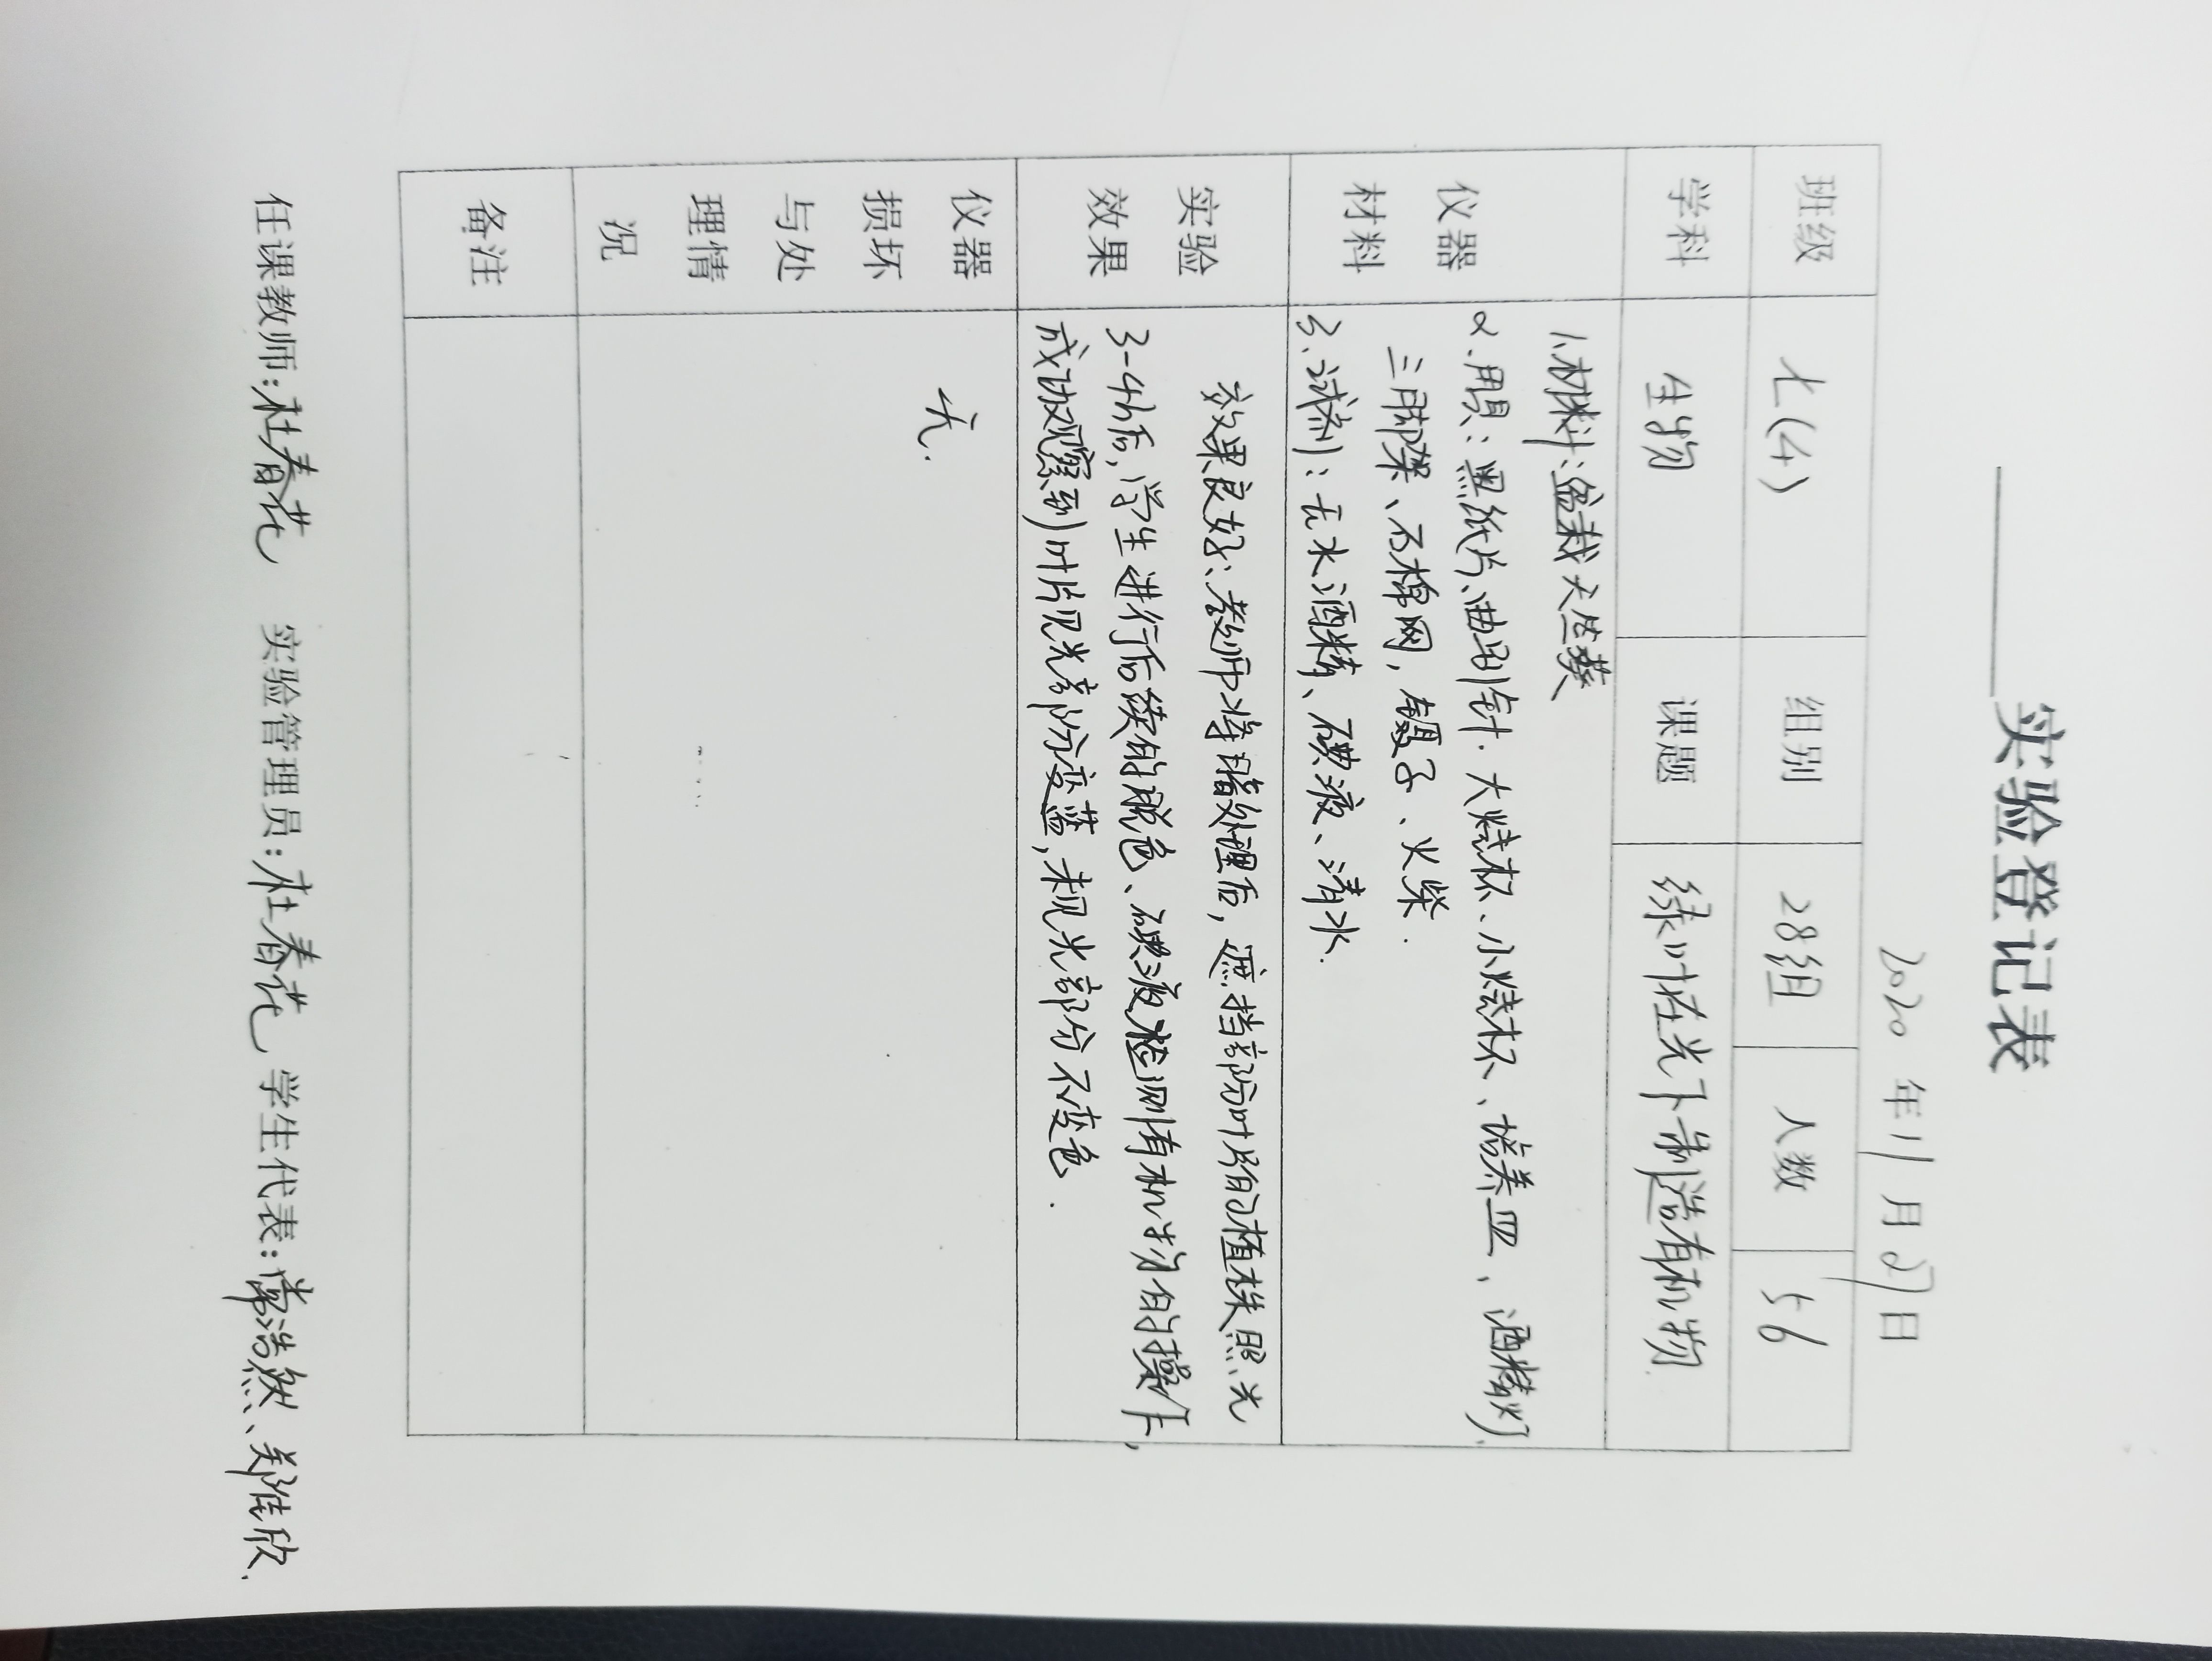 实验登记表
2020年11月27日
班级 七(4) 组别 28组 人数 56
学科 生物 课题 绿叶在光下制造有机物
仪器材料
1、材料：盆栽天竺葵
2、用具：黑纸片、曲别针、大烧杯、小烧杯、培养皿、酒精灯、
三脚架、石棉网，镊子、火柴.
3、试剂：无水酒精、碘液、清水.
实验效果
效果良好；教师将暗处理后，遮挡部分叶片的植株照光
3-4h后，学生进行后续的脱色、碘液检测有机物的操作，
成功观察到叶片见光部分变蓝，未见光部分不变色.
仪器损坏与处理情况
无.
备注
任课教师：杜春花 实验管理员：杜春花 学生代表：常浩然、郑雅欣.